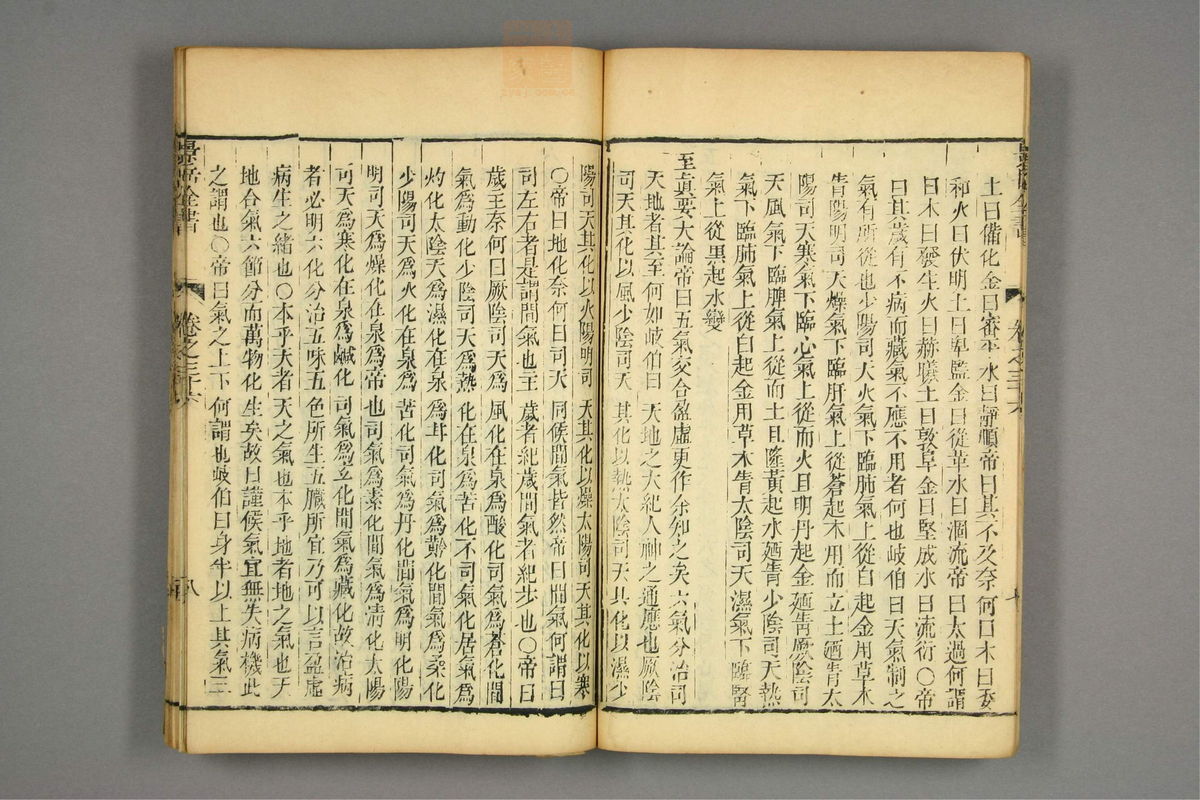 土曰備化金曰審平水曰靜順帝曰其不及奈何曰木曰委
和火曰伏明土曰卑監金曰從革水曰涸流帝曰太過何謂
曰木曰發生火曰赫曦土曰敦阜金曰堅成水曰流衍○帝
曰其歲有不病而藏氣不應不用者何也岐伯曰天氣制之
氣有所從也少陽司天火氣下臨肺氣上從白起金用草木
眚陽明司天燥氣下臨肝氣上從蒼起木用而立土廼眚太
陽司天寒氣下臨心氣上從而火且明丹起金廼眚厥陰司
天風氣下臨脾氣上從而土且隆黃起水廼眚少陰司天熱
氣下臨肺氣上從白起金用草木眚太陰司天濕氣下臨腎
氣上從黑起水變
至眞要大論帝曰五氣交合盈虛更作余知之矣六氣分治司
天地者其至何如岐伯曰天地之大紀人神之通應也厥陰
司天其化以風少陰司天其化以熱太陰司天其化以濕少
陽司天其化以火陽明司天其化以燥太陽司天其化以寒
○帝曰地化奈何曰司天同候間氣皆然帝曰間氣何謂曰
司左右者是謂間氣也主歲者紀歲間氣者紀步也○帝曰
歲主奈何曰厥陰司天爲風化在泉爲酸化司氣爲蒼化間
氣爲動化少陰司天爲熱化在泉爲苦化不司氣化居氣爲
灼化太陰司天爲濕化在泉爲甘化司氣爲黅化間氣爲柔化
少陽司天爲火化在泉爲苦化司氣爲丹化間氣爲明化陽
明司天爲燥化在泉爲帝也司氣爲素化間氣爲清化太陽
司天爲寒化在泉爲鹹化司氣爲玄化間氣爲藏化故治病
者必明六化分治五味五色所生五臟所宜乃可以言盈虛
病生之緒也○本乎天者天之氣也本乎地者地之氣也天
地合氣六節分而萬物化生矣故曰謹候氣宜無失病機此
之謂也○帝曰氣之上下何謂也岐伯曰身半以上其氣三
卷之二十六
八